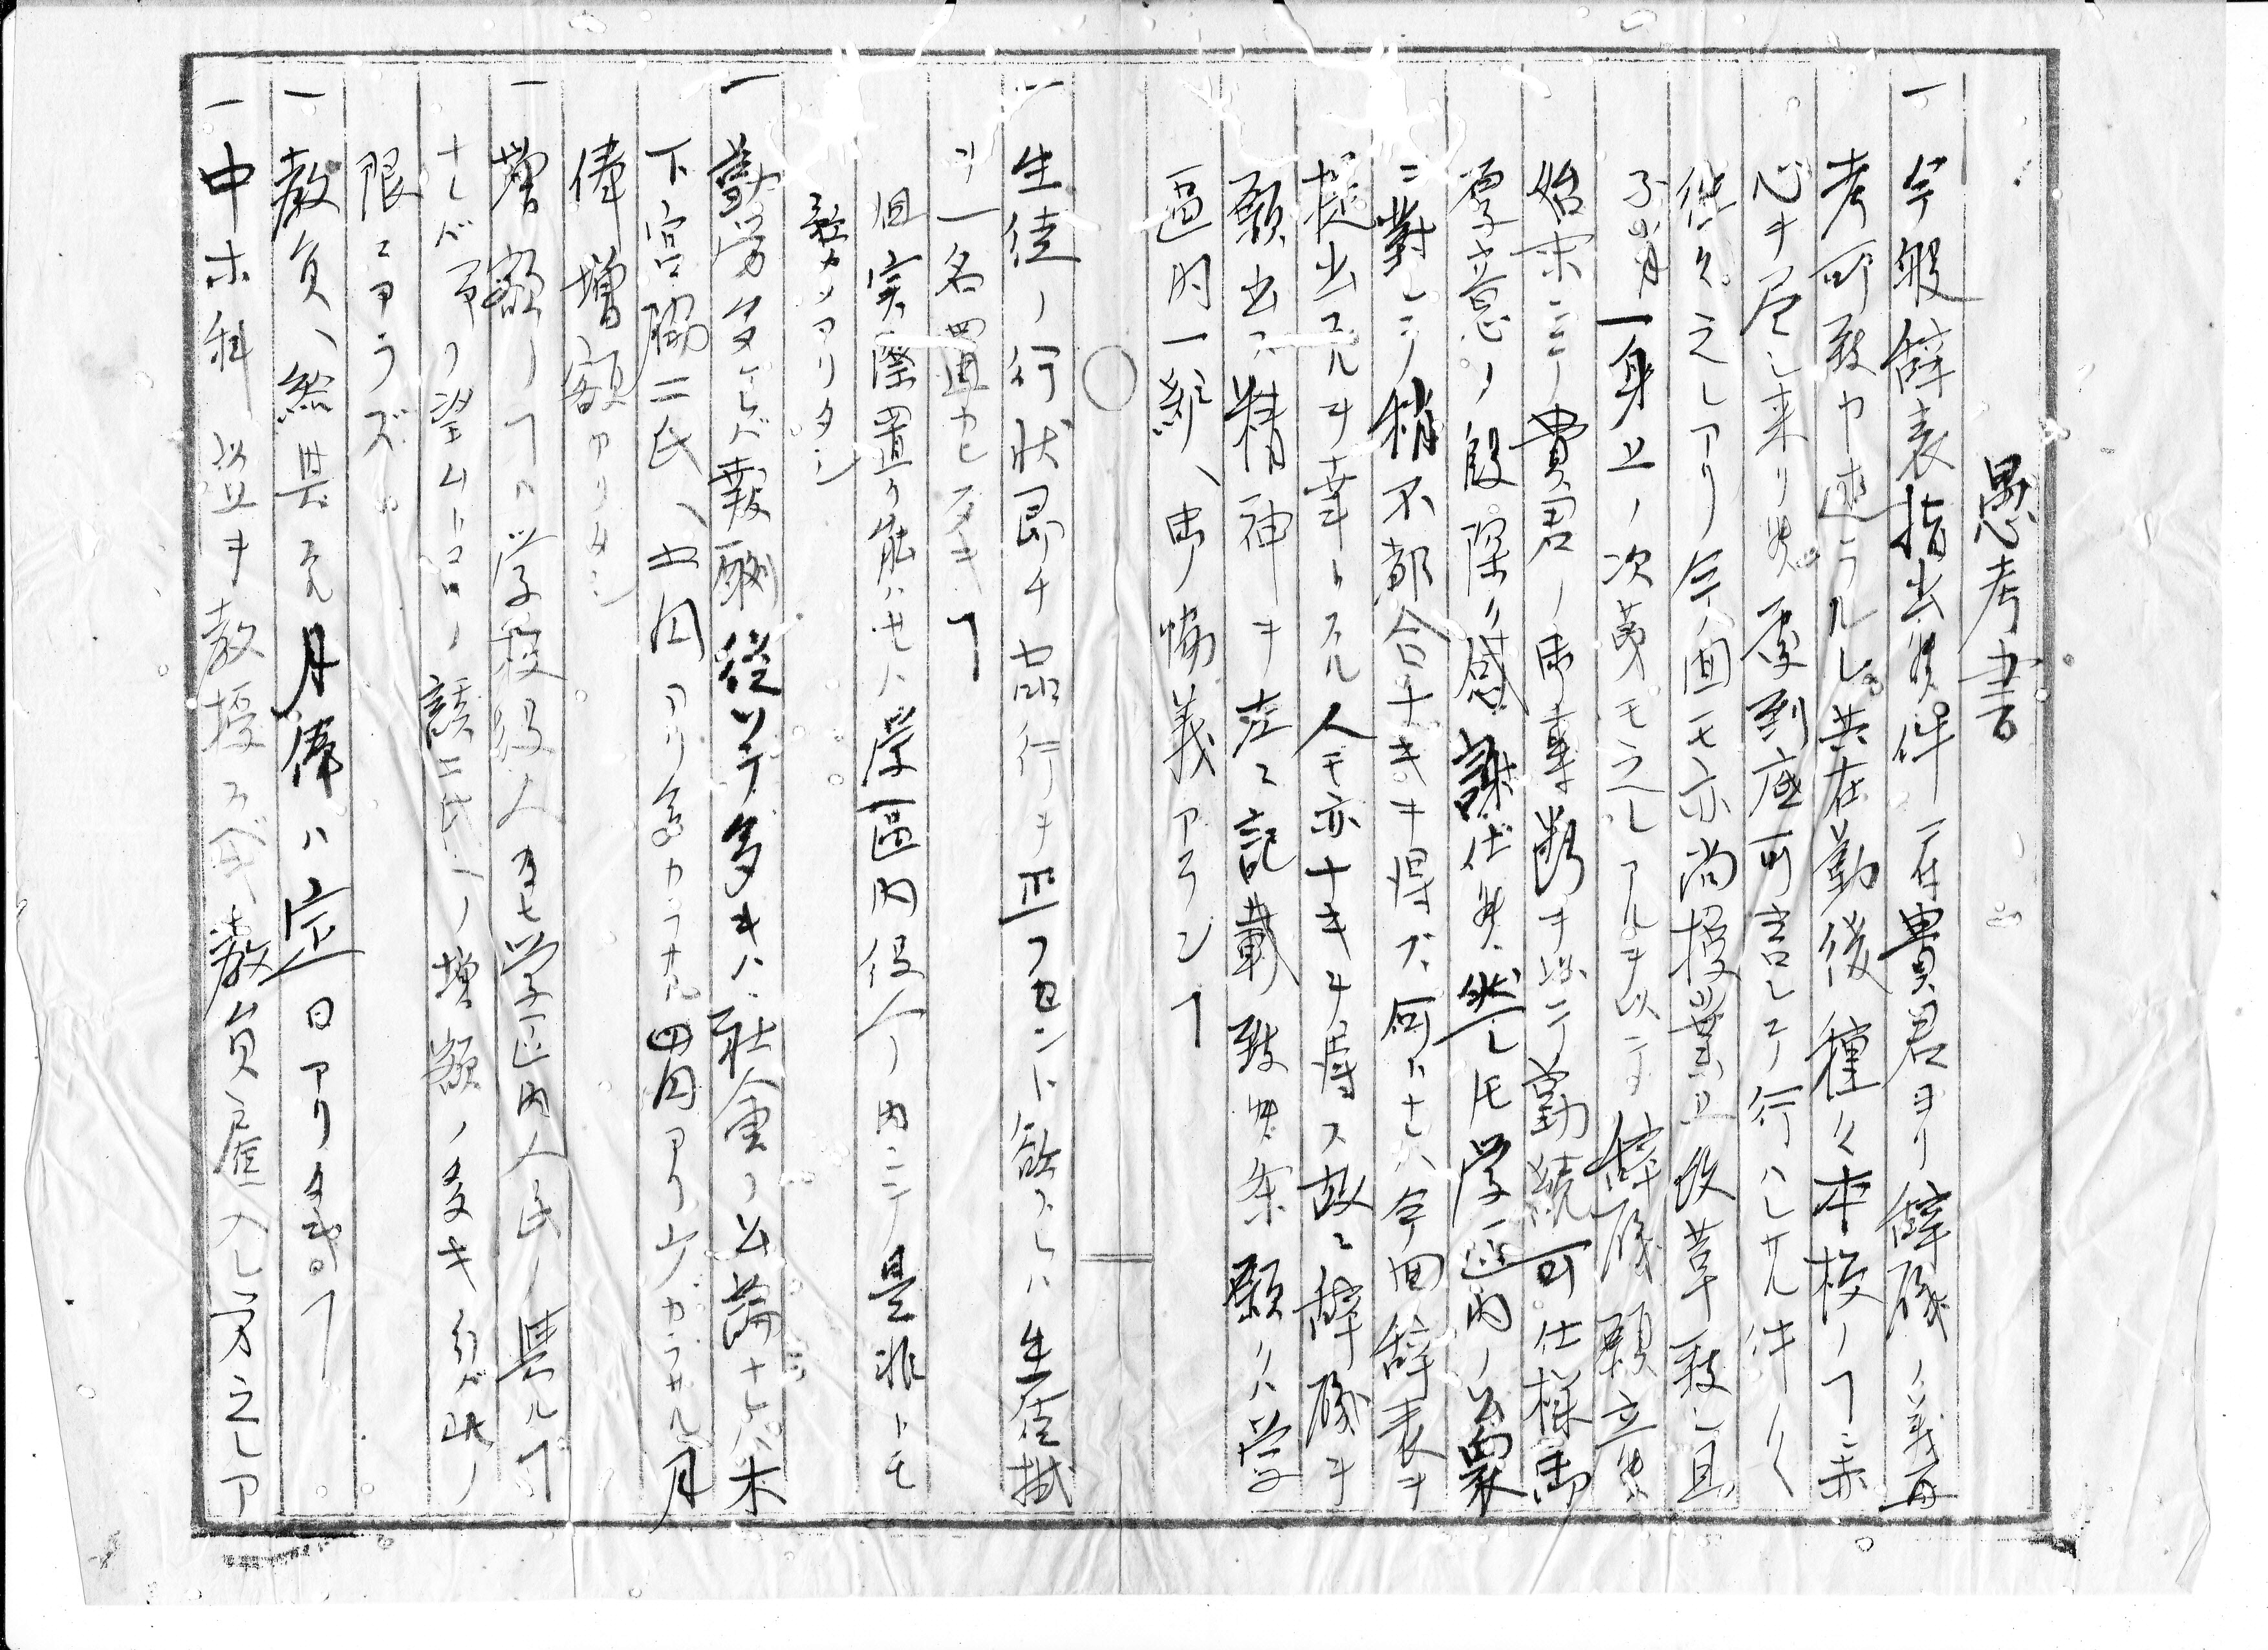 愚考書
一今般辞表指出候件ニ付貴君ヨリ辞職ノ義再
考可致申述ラルレ共在勤後種々本校ノヿニ赤
心ヲ尽シ来リ候処到底可言シテ行ハレサル件々
往々之レアリ今回モ亦尚授業上改革致シ且
不肖一身上ノ次第モ之レアルヲ以テ辞職願立候
始末ニテ貴君ノ御事断ヲ以テ勤続可仕様御
厚意ノ段深ク感謝仕候然レ𪜈学区内ノ公衆
ニ對シテ稍不都合ナキヲ得ズ何トナレハ今回辞表ヲ
提出スルヲ幸トスル人モ亦ナキヲ得ス故ニ辞職ヲ
願出ス精神ヲ左ニ記載致候条願クハ学
区内一統ヘ御協義アランヿ
○
一生徒ノ行状即チ品行ヲ正フセント欲スレハ生徒掛
ヲ一名置カレ度キヿ
但実際置ク能ハセハ学區内役人ノ内ニテ是非トモ
務メアリタシ
一勤労多ケレバ報酬従ツテ多キハ社会ノ公論ナレバ木
下宮脇二氏ヘ七円アリ  カラサル四円アリ  ガラサル月
俸増額アリタシ
一増額ノヿハ学校役人及ヒ学区内人民ノ   ルヿ
ナレバ  ノ望ムトコロノ  二氏ヘノ増額ノ多キ  バ此ノ
限ニアラズ
一教員ヘ給與ス月俸ハ定日アリタキヿ
一中等科以上ヲ教授スベキ教員雇入レ方之レア